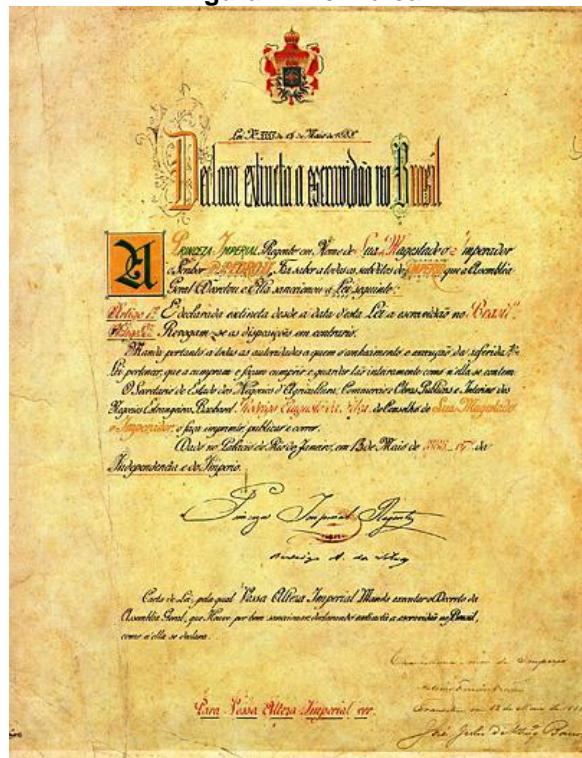 Lei Nº 3353 de 13 de Maio de 1888
Declara extincta a escravidão no Brasil
A PRINCEZA IMPERIAL Regente em Nome de Sua Magestade o Imperador
o Senhor D. PEDRO II, Faz saber a todos os subditos do IMPERIO que a Assembléa
Geral Decretou e Ella sanccionou a Lei seguinte:
Artigo 1º É declarada extincta desde a data d'esta Lei a escravidão no Brasil.
Revogam-se as disposições em contrario.
Manda portanto a todas as autoridades a quem o conhecimento e execução da referida
Lei pertencer, que a cumpram e façam cumprir e guardar tão inteiramente como n'ella se contem.
O Secretario de Estado dos Negocios d'Agricultura, Commercio e Obras Publicas e Interino dos
Negocios Estrangeiros, Bacharel Rodrigo Augusto da Silva do Conselho de Sua Magestade
o Imperador, o faça imprimir, publicar e correr.
Dado no Palacio do Rio de Janeiro, em 13 de Maio de 1888 - 67º da
Independencia e do Imperio.
Princeza Imperial Regente
Rodrigo A. da Silva
Carta de Lei, pela qual Vossa Alteza Imperial Manda executar o Decreto da
Assembléa Geral, que Houve por bem sanccionar, declarando extincta a escravidão no Brasil,
como n'ella se declara.
Para Vossa Alteza Imperial ver.